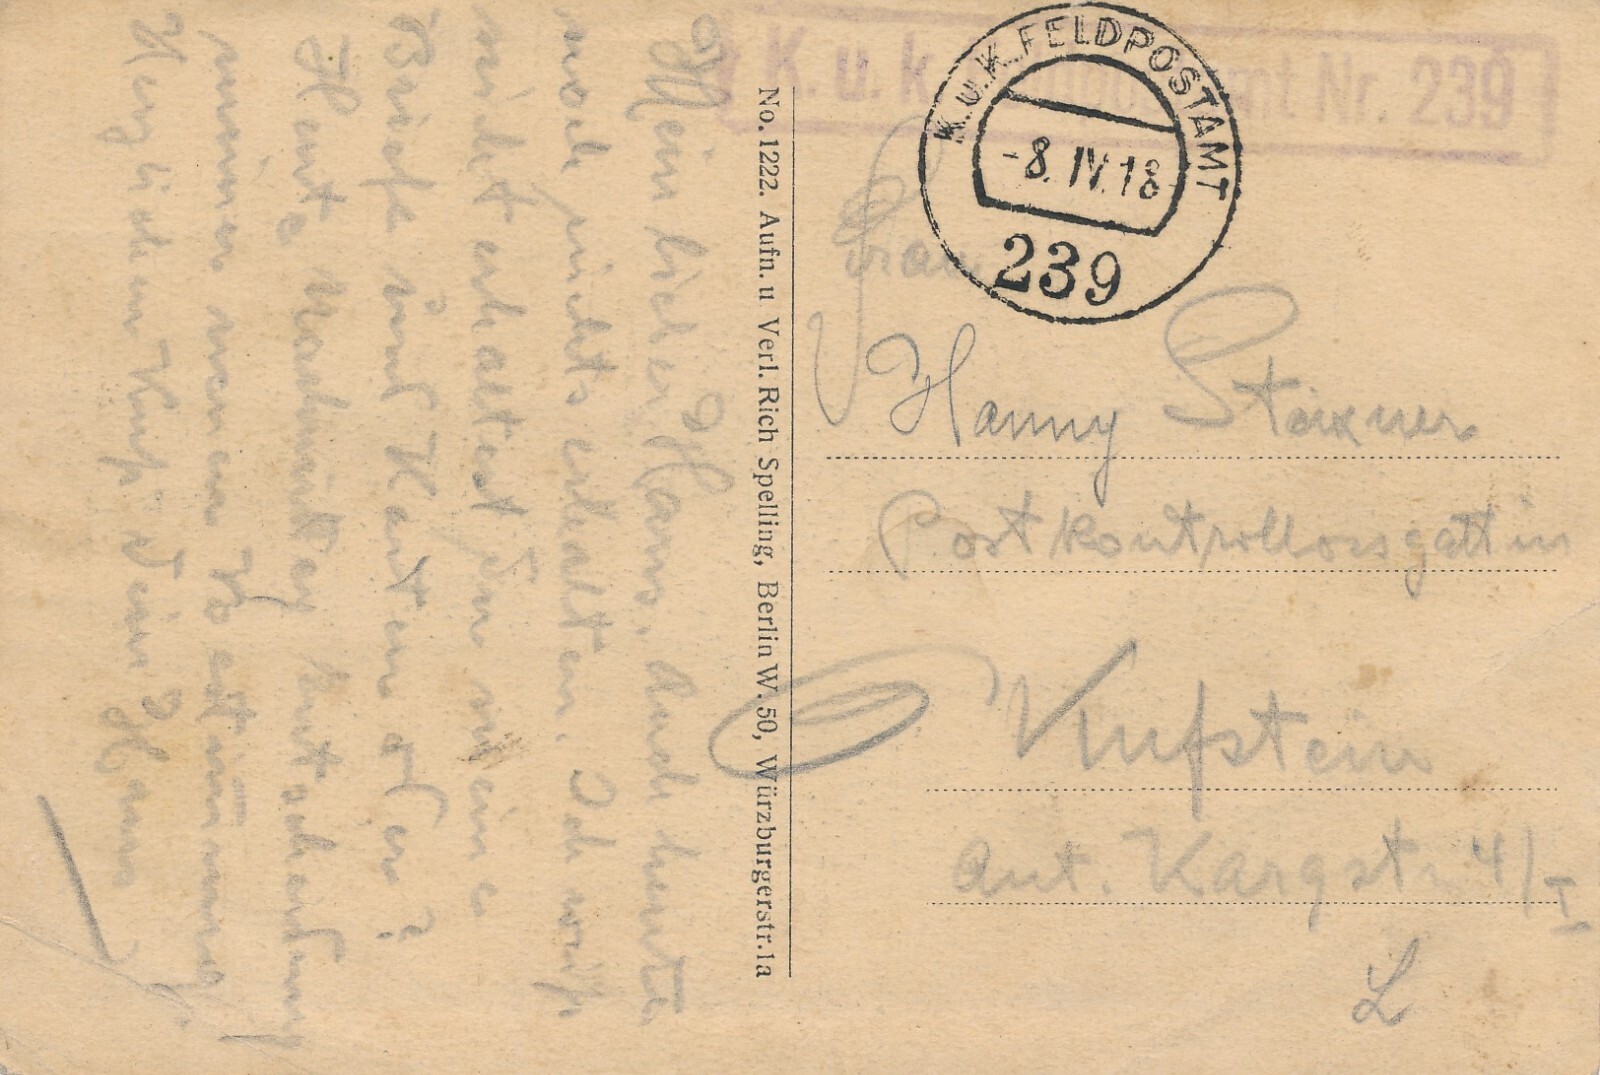 K. u. k. Feldpostamt Nr. 239
K. u. K. FELDPOSTAMT
-8. IV. 18
239
Frau
Hanny Staxner
Postkontrollorsgattin
Kufstein
Ant. Kargstr. 4/I
L
No. 1222. Aufn. u Verl. Rich Spelling, Berlin W. 50, Würzburgerstr. 1a
Mein lieber Hans, Auch heute
noch nichts erhalten. Ich weiß
nicht erhaltest Du meine
Briefe und Karten oder?
Heute Nachmittag Entscheidung
meiner neuen Bestimmung
Herzlichen Kuß Dein Hans